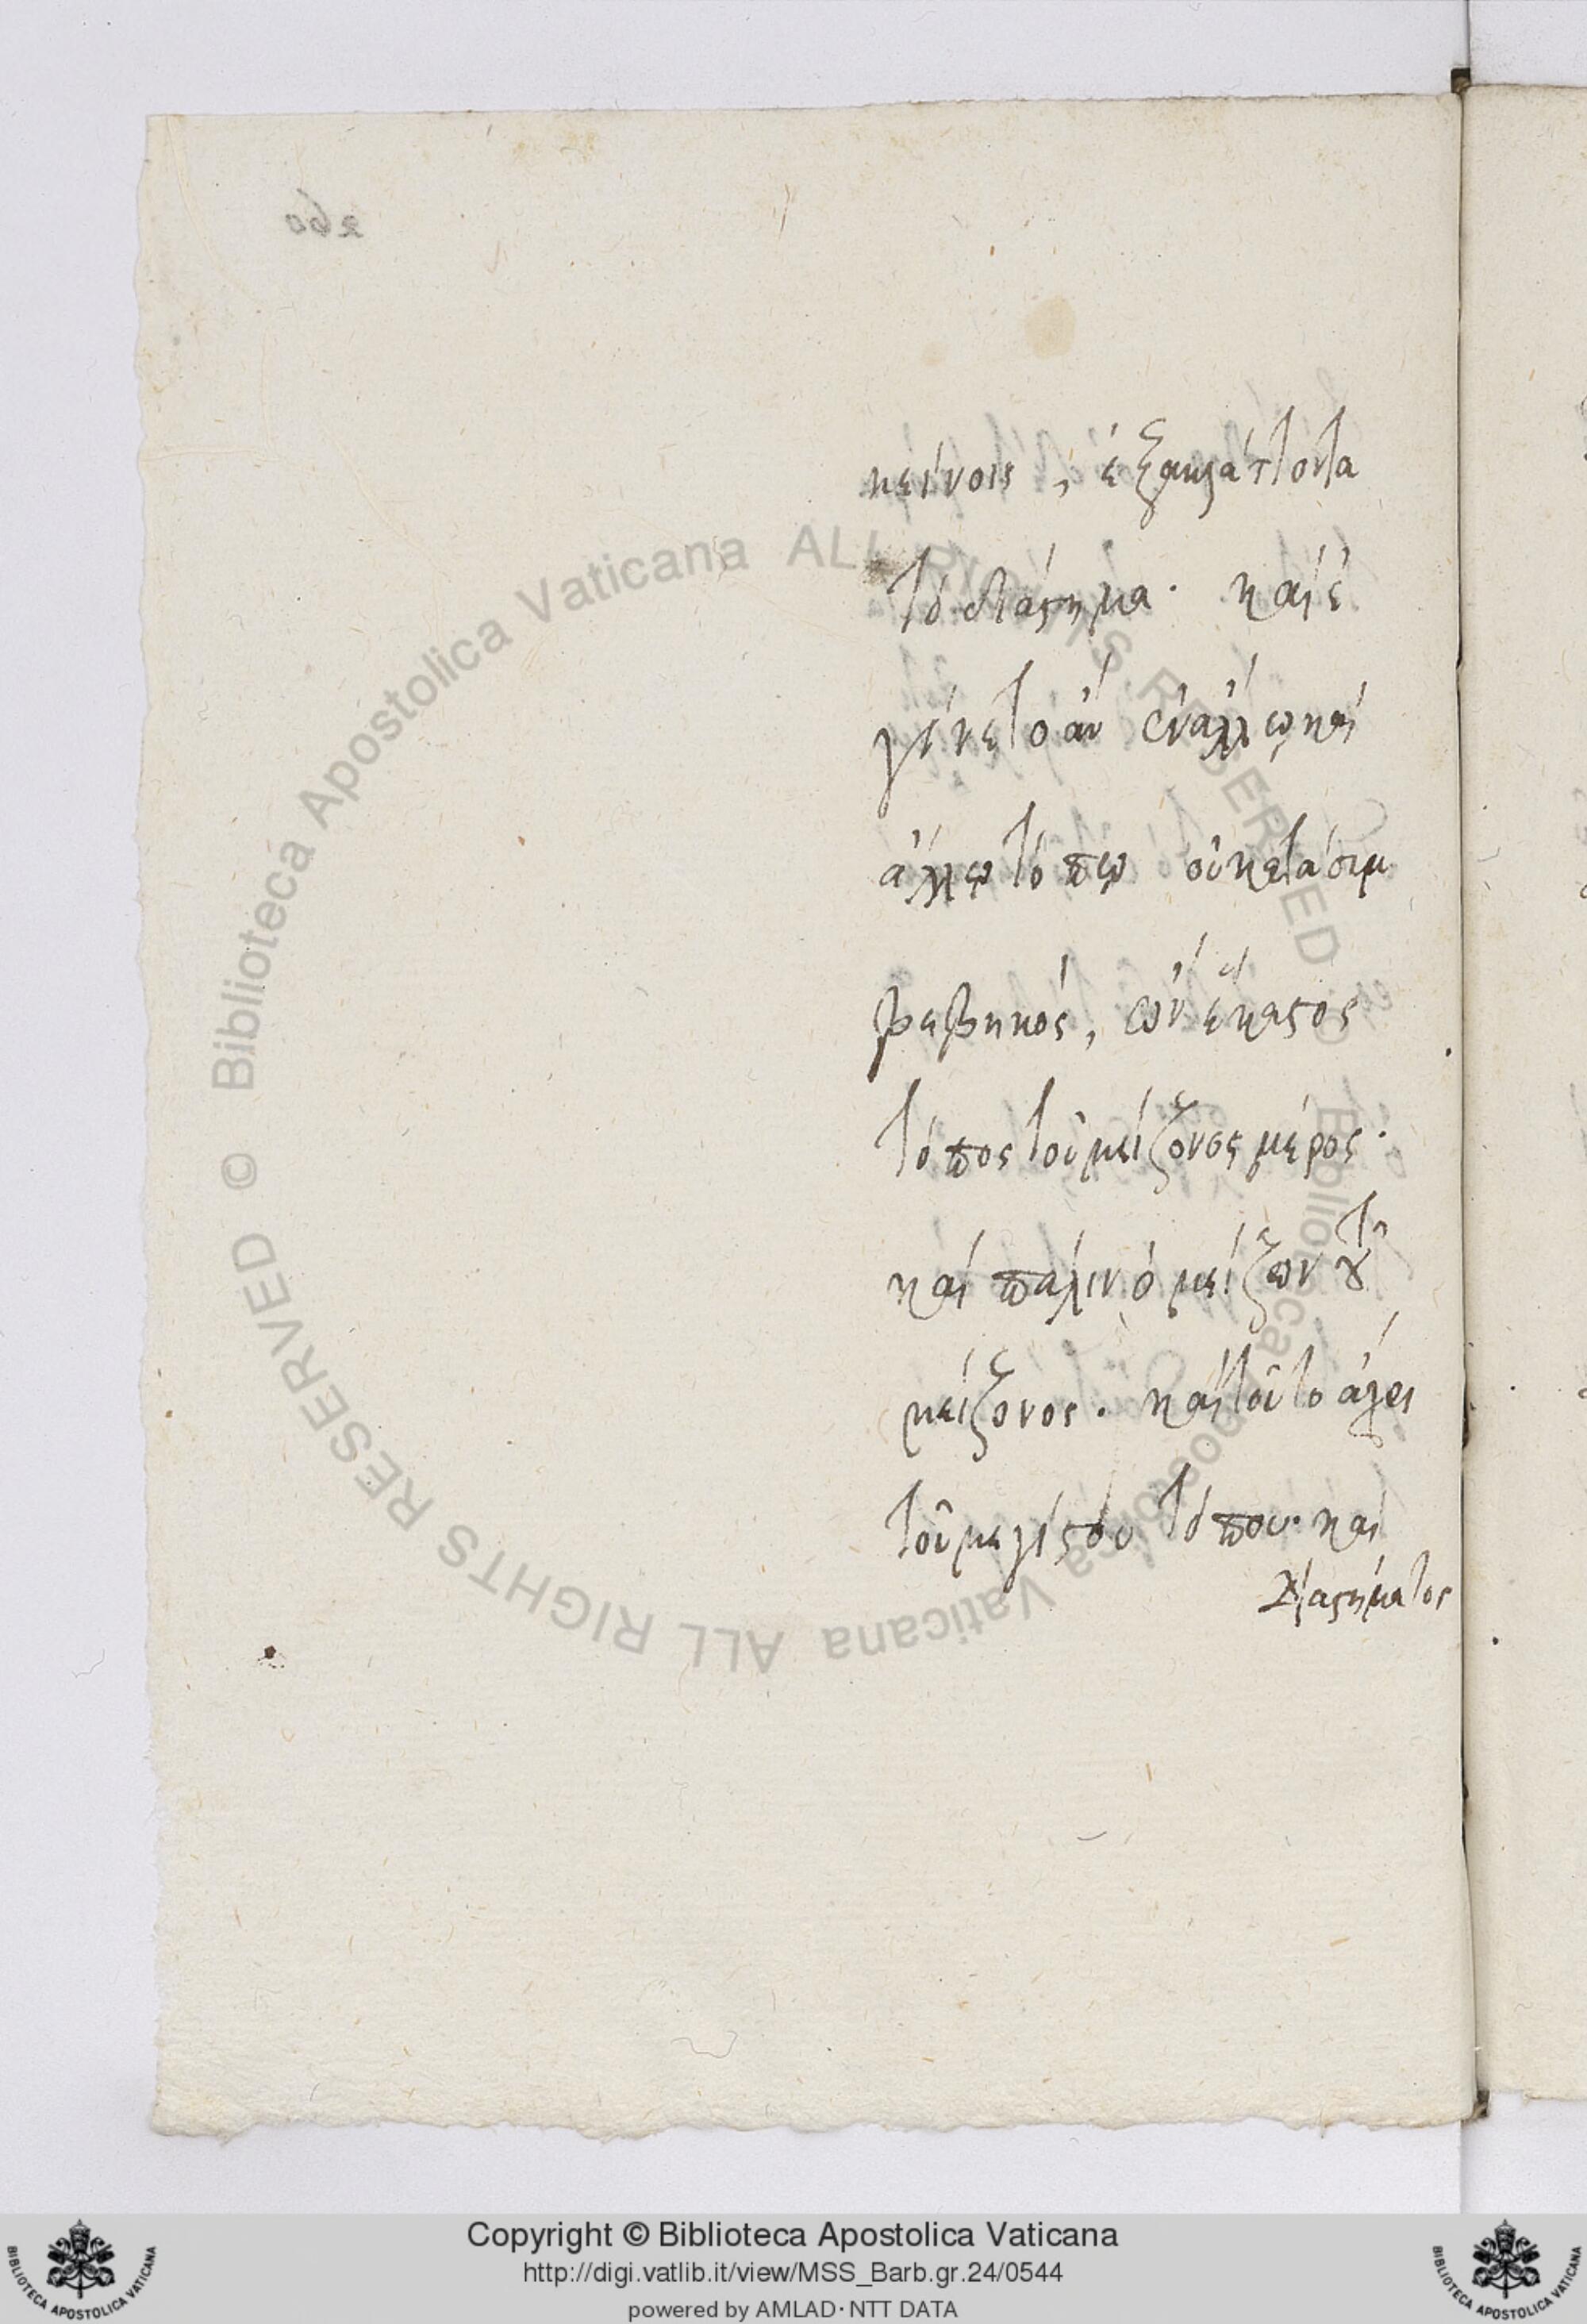 κείνοις, ἐξαπλάττοντα
τὸ διάστημα. καὶ ἐ
γένετο ἂν ἐν ἄλλῳ καὶ
ἄλλῳ τόπῳ οὐ κατὰ συμ
βεβηκὸς, ὧν ἕκαστος
τόπος τοῦ μείζονος μέρος.
καὶ πάλιν ὁ μείζων τοῦ
μείζονος. καὶ τοῦτο ἄχρι
τοῦ μεγίστου τόπου. καὶ
διαστήματος
260
© Biblioteca Apostolica Vaticana ALL RIGHTS RESERVED © Biblioteca Apostolica Vaticana ALL RIGHTS RESERVED
Copyright © Biblioteca Apostolica Vaticana
http://digi.vatlib.it/view/MSS_Barb.gr.24/0544
powered by AMLAD · NTT DATA
BIBLIOTECA APOSTOLICA VATICANA
BIBLIOTECA APOSTOLICA VATICANA